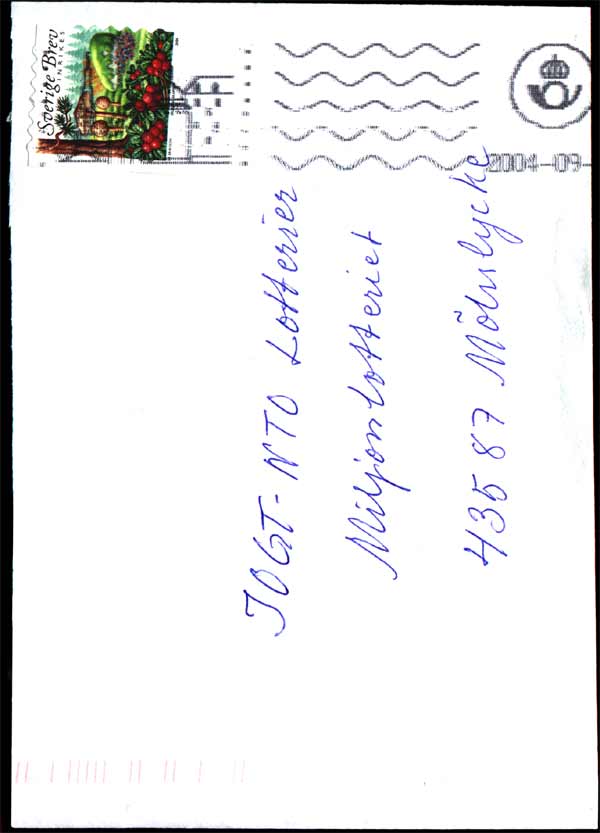 Sverige Brev
INRIKES
2004-09-
IOGT-NTO Lotterier
Miljonlotteriet
435 87 Mölnlycke